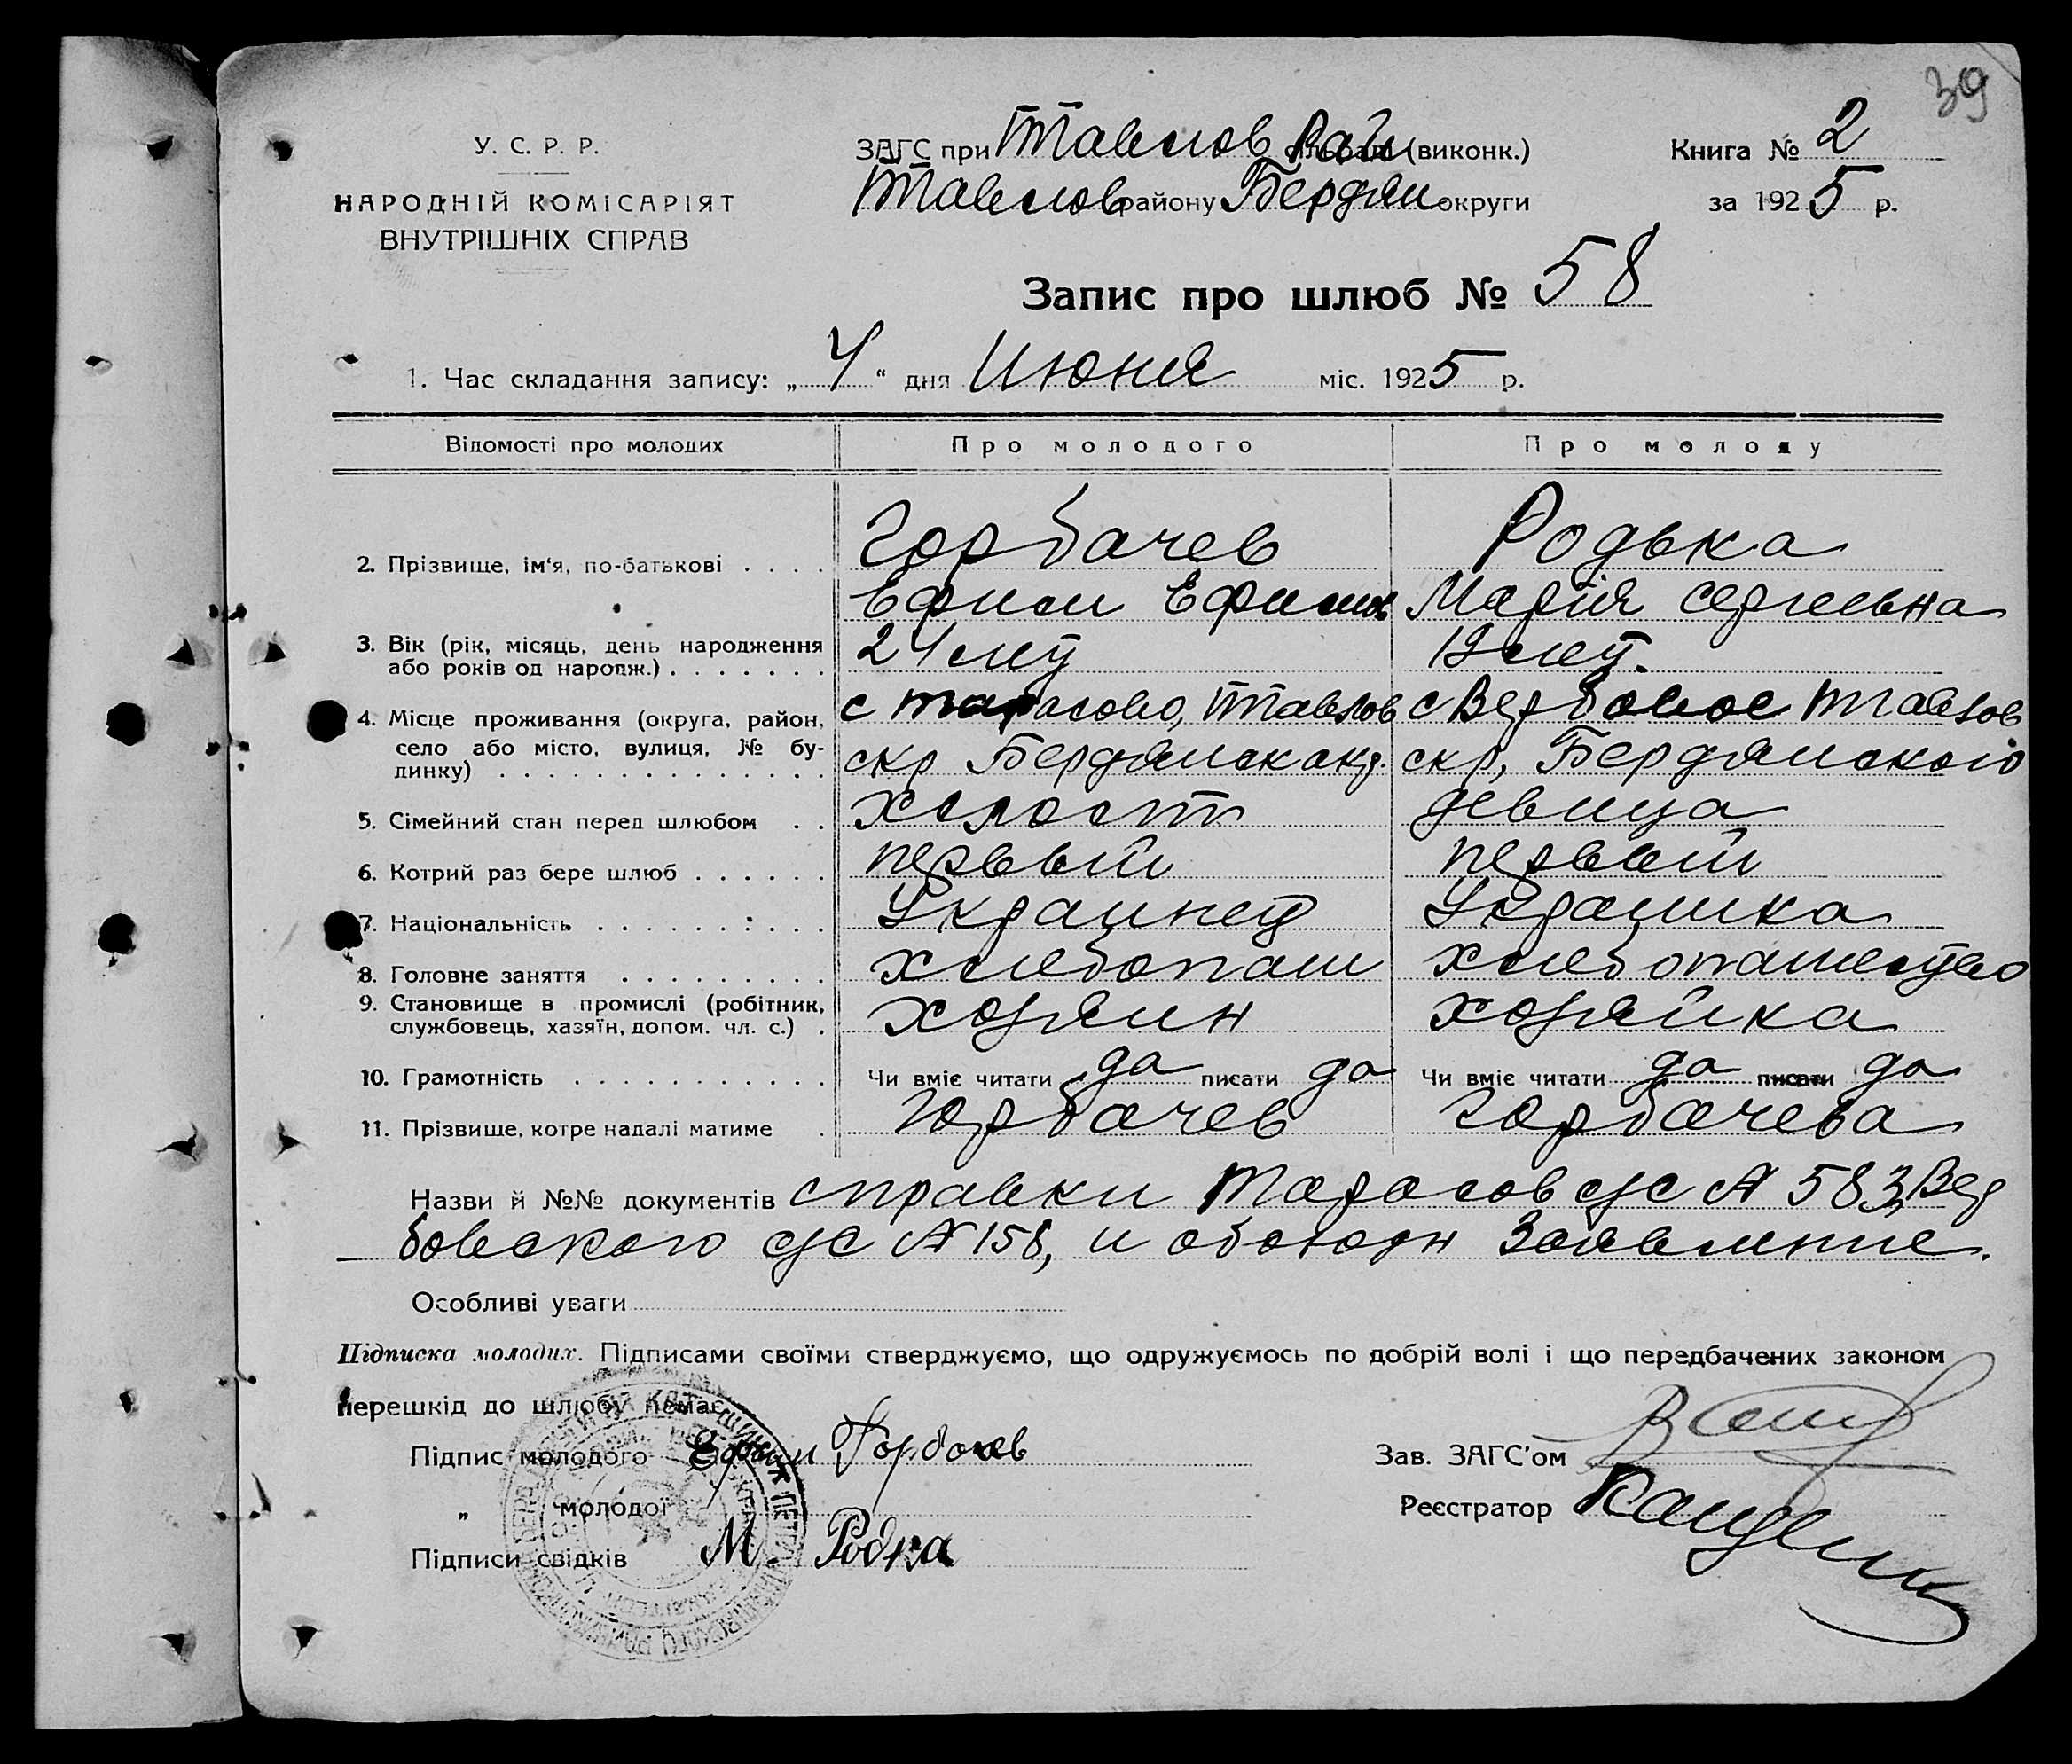 39
У. С. Р. Р.
НАРОДНІЙ КОМІСАРІЯТ
ВНУТРІШНІХ СПРАВ
ЗАГС при Павлов Рай сільраді (виконк.)
Павлов району Бердян округи
Книга № 2
за 1925 р.
Запис про шлюб № 58
1. Час складання запису: „ 4 “ дня Июня міс. 1925 р.
Відомості про молодих Про молодого Про молоду
2. Прізвище, ім'я, по-батькові . . . . Горбачев Родька
Ефим Ефимов Мария Сергеевна
3. Вік (рік, місяць, день народження
або років од нарощж.) . . . . . . . 24 лет 19 лет.
4. Місце проживання (округа, район, с Тарасово, Павлов с Вербовое Павлов
село або місто, вулиця, № бу- окр Бердянск окр. окр, Бердянского
динку) . . . . . . . . . . . . . .
5. Сімейний стан перед шлюбом . . холост девица
6. Котрий раз бере шлюб . . . . . . первый первый
7. Національність . . . . . . : . . . Украинец Украинка
8. Головне заняття . . . . . . . . . хлебопаш хлебопашество
9. Становище в промислі (робітник,
службовець, хазяїн, допом. чл. с.) . хозяин хозяйка
10. Грамотність . . . . . . . . . . . Чи вміє читати да писати да Чи вміє читати да писати да
11. Прізвище, котре надалі матиме . Горбачев Горбачева
Назви й №№ документів справки Тарасов с/с № 583, Вер
бовского с/с № 158, и обоюдн Заявление.
Особливі уваги
Підписка молодих. Підписами своїми стверджуємо, що одружуємось по добрій волі і що передбачених законом
перешкід до шлюбу немає.
Підпис молодого Ефим Горбачев
Зав. ЗАГС'ом
„ молодої
Реєстратор
Підписи свідків М. Родка